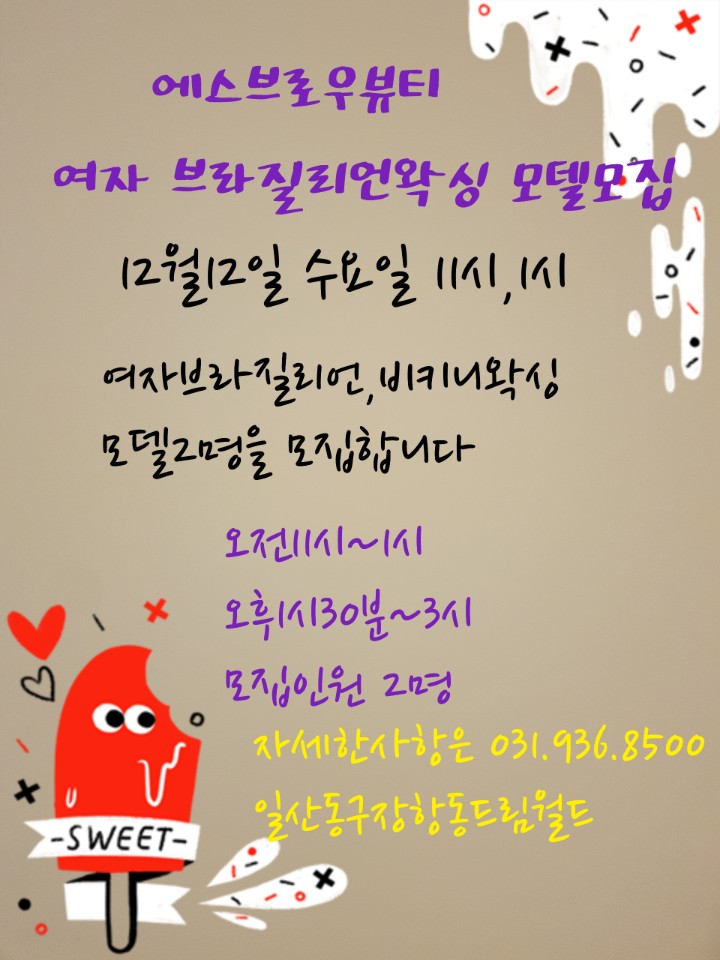 에스브로우뷰티
여자 브라질리언왁싱 모델모집
12월12일 수요일 11시,1시
여자브라질리언,비키니왁싱
모델2명을 모집합니다
오전11시~1시
오후1시30분~3시
모집인원 2명
자세한사항은 031.936.8500
일산동구장항동드림월드
-SWEET-